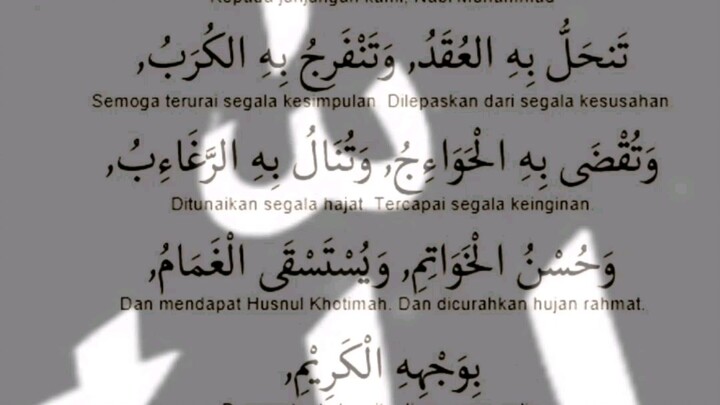 تَنحَلُّ بِهِ العُقَدُ, وَتَنْفَرِجُ بِهِ الكُرَبُ,
Semoga terurai segala kesimpulan. Dilepaskan dari segala kesusahan
وَتُقْضَى بِهِ الْحَوَاءِجُ, وَتُنَالُ بِهِ الرَّغَاءِبُ,
Ditunaikan segala hajat. Tercapai segala keinginan.
وَحُسْنُ الْخَوَاتِمِ, وَيُسْتَسْقَى الْغَمَامُ,
Dan mendapat Husnul Khotimah. Dan dicurahkan hujan rahmat.
بِوَجْهِهِ الْكَرِيْمِ,